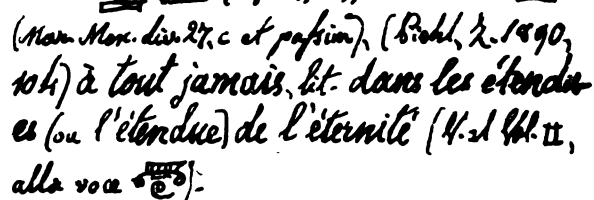 (Mar. Mon. div. 27, c et passim), (Piehl, Z. 1890,
104) à tout jamais, lit. dans les étendu-
es (ou l'étendue) de l'éternité (V. al Vol. II,
alla voce ):